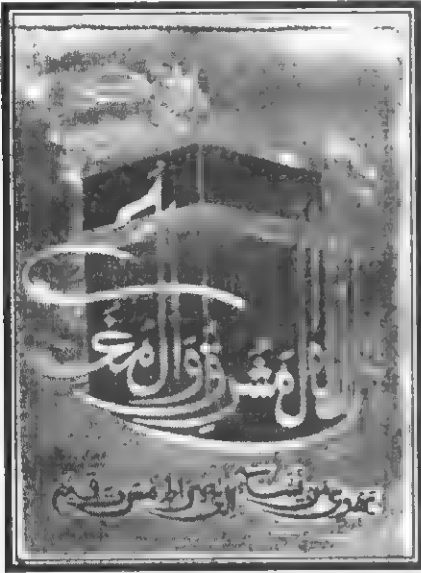 المشرق والمغرب
يهدي من يشاء إلى صراط مستقيم